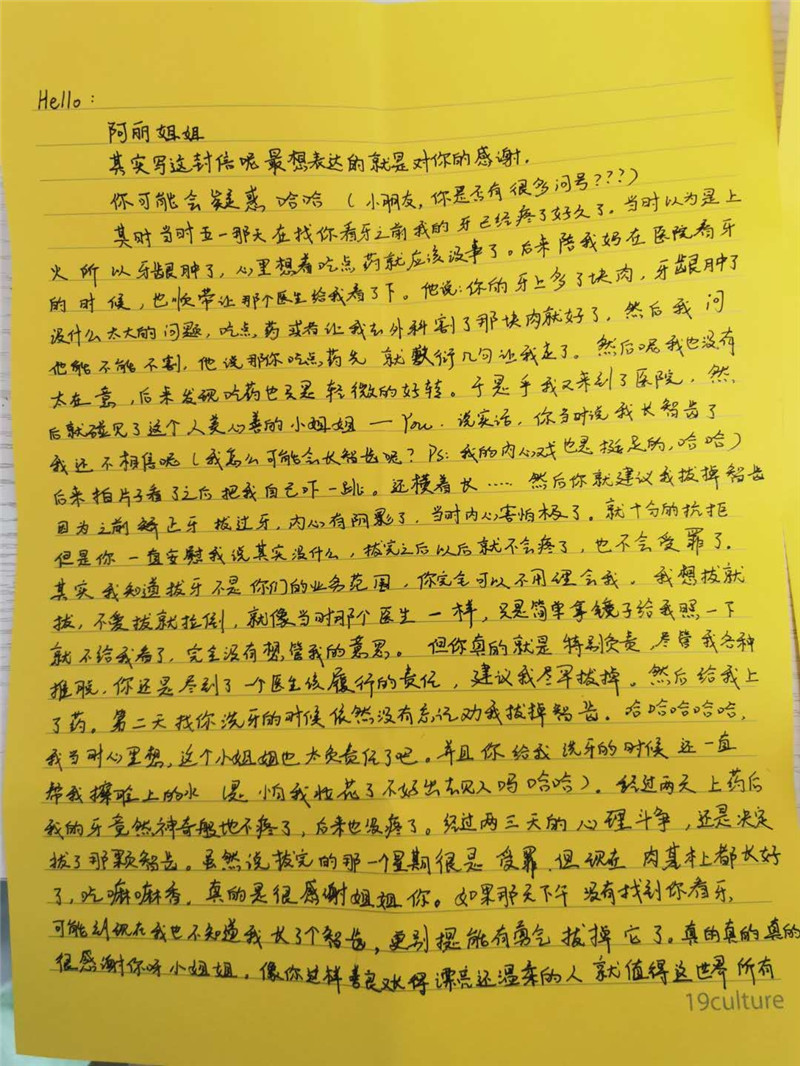 Hello：
阿丽姐姐
其实写这封信呢最想表达的就是对你的感谢.
你可能会疑惑哈哈（小朋友,你是否有很多问号???）
其时当时五一那天在找你看牙之前我的牙已经疼了好久了。当时以为是上
火所以牙龈肿了，心里想着吃点药就应该没事了。后来陪我妈在医院看牙
的时候，也顺带让那个医生给我看了下。他说:你的牙上多了块肉，牙龈肿了
没什么太大的问题，吃点药或者让我去外科割了那块肉就好了，然后我问
他能不能不割，他说那你吃点药先 就敷衍几句让我走了。然后呢我也没有
太在意，后来发现吃药也只是轻微的好转。于是乎我又来到了医院，然
后就碰见了这个人美心善的小姐姐 — You. 说实话，你当时说我长智齿了
我还不相信呢（我怎么可能会长智齿呢？Ps: 我的内心戏也是挺足的,哈哈）
后来拍片子看了之后把我自己吓一跳。还横着长…… 然后你就建议我拔掉智齿
因为之前矫正牙 拔过牙，内心有阴影了，当时内心害怕极了。就十分的抗拒
但是你一直安慰我说其实没什么，拔完之后以后就不会疼了，也不会受罪了.
其实我知道拔牙不是你们的业务范围，你完全可以不用理会我。我想拔就
拔，不爱拔就拉倒，就像当时那个医生一样，只是简单拿镜子给我照一下
就不给我看了，完全没有想管我的意思。但你真的就是特别负责，尽管我各种
推脱，你还是尽到了一个医生该履行的责任，建议我尽早拔掉。然后给我上
了药。第二天找你洗牙的时候依然没有忘记劝我拔掉智齿。哈哈哈哈哈,
我当时心里想，这个小姐姐也太负责任了吧。并且你给我洗牙的时候还一直
帮我擦脸上的水（是怕我妆花了不好出去见人吗哈哈）。经过两天上药后
我的牙竟然神奇般地不疼了，后来也没疼了。经过两三天的心理斗争，还是决定
拔了那颗智齿。虽然说拔完的那一个星期很是受罪.但现在肉基本上都长好
了，吃嘛嘛香. 真的是很感谢姐姐你。如果那天下午没有找到你看牙,
可能到现在我也不知道我长了个智齿，更别提能有勇气拔掉它了。真的真的真的
很感谢你呀小姐姐。像你这样善良又长得漂亮还温柔的人就值得这世界所有
19culture